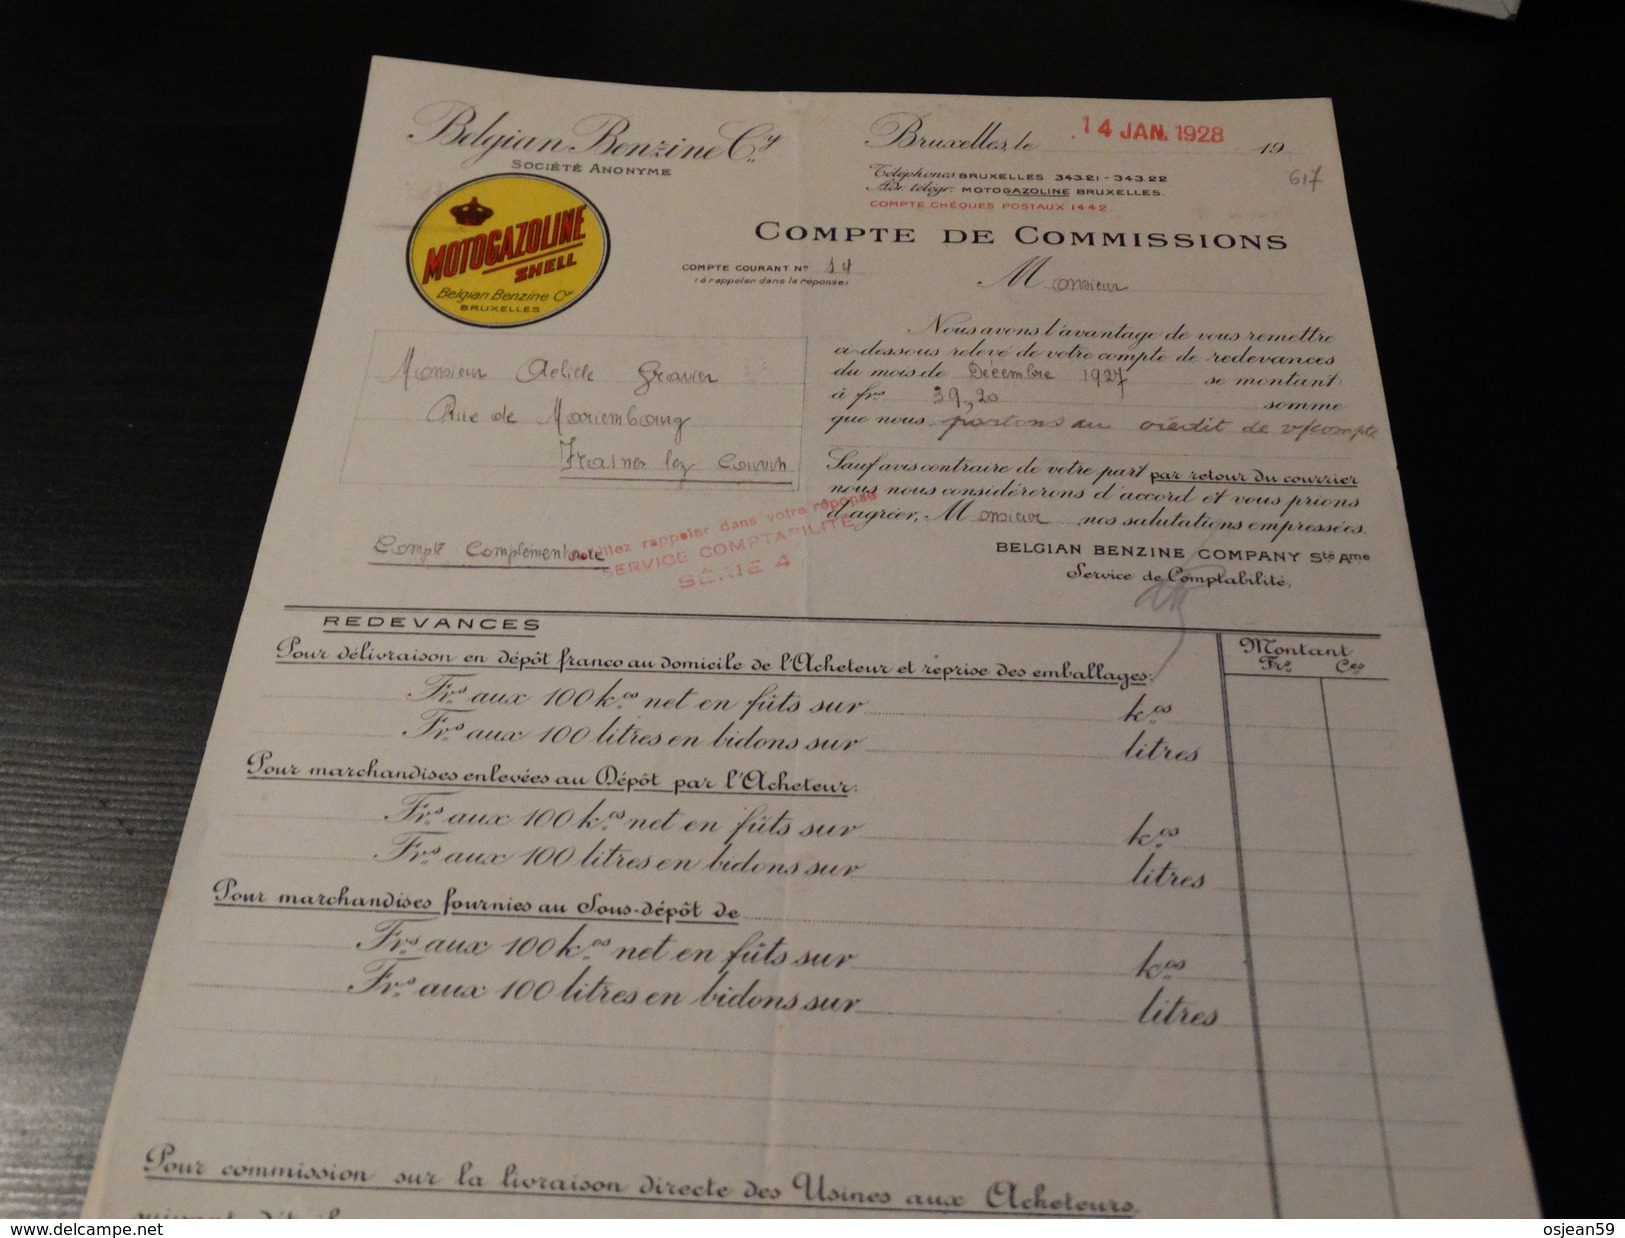 Belgian Benzine Cy
SOCIÉTÉ ANONYME
MOTOGAZOLINE
SHELL
Belgian Benzine Cy
BRUXELLES
Bruxelles, le 14 JAN. 1928 19
Téléphones BRUXELLES 343.21 - 343.22
Adr. télégr. MOTOGAZOLINE BRUXELLES.
COMPTE CHÈQUES POSTAUX 1442.
617
COMPTE DE COMMISSIONS
COMPTE COURANT No 14
(à rappeler dans la réponse)
Monsieur
Monsieur Achille Gravier
Rue de Mariembourg
Frasnes lez Couvin
Nous avons l'avantage de vous remettre
ci-dessous relevé de votre compte de redevances
du mois de Décembre 1927 se montant
à frs 39,20 somme
que nous portons au crédit de v/compte
Sauf avis contraire de votre part par retour du courrier
nous nous considérerons d'accord et vous prions
d'agréer, Monsieur nos salutations empressées.
BELGIAN BENZINE COMPANY Sté Ame
Service de Comptabilité,
Compte Complémentaire
Veuillez rappeler dans votre réponse
SERVICE COMPTABILITÉ
SÉRIE 4
REDEVANCES
Montant
Frs Ces
Pour délivraison en dépôt franco au domicile de l'Acheteur et reprise des emballages:
Frs aux 100 kos net en fûts sur kos
Frs aux 100 litres en bidons sur litres
Pour marchandises enlevées au Dépôt par l'Acheteur:
Frs aux 100 kos net en fûts sur kos
Frs aux 100 litres en bidons sur litres
Pour marchandises fournies au Sous-dépôt de
Frs aux 100 kos net en fûts sur kos
Frs aux 100 litres en bidons sur litres
Pour commission sur la livraison directe des Usines aux Acheteurs,
suivant détail
www.delcampe.net
osjean59